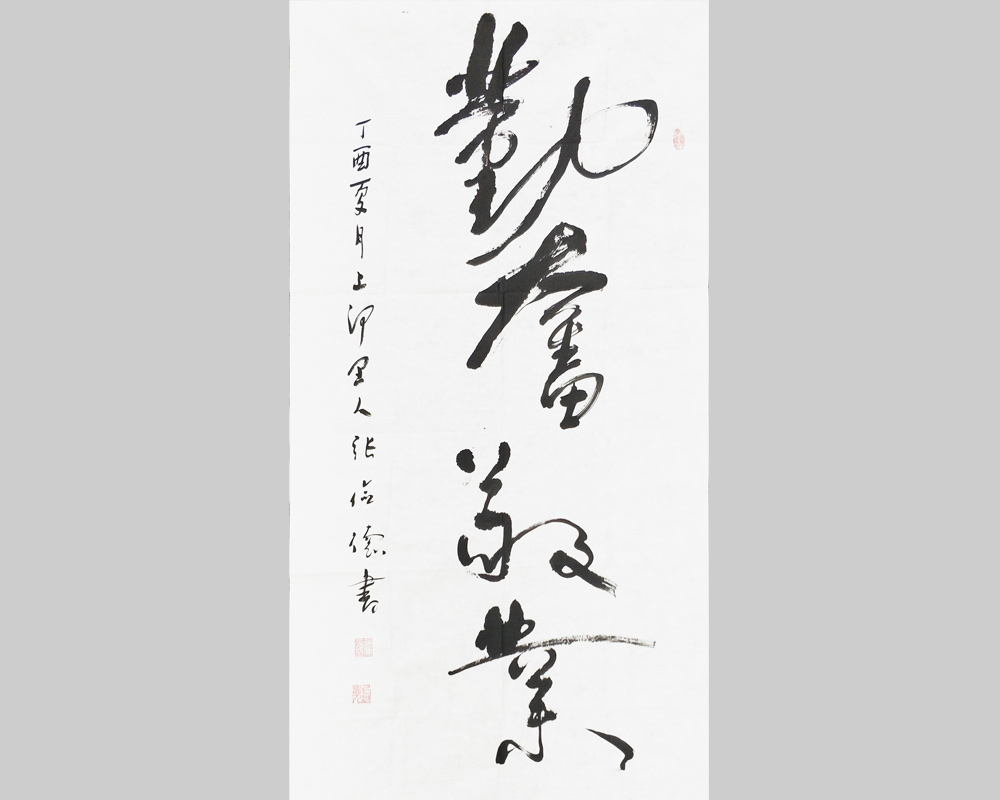 勤奮敬業
丁酉夏月上河里人張儉德書